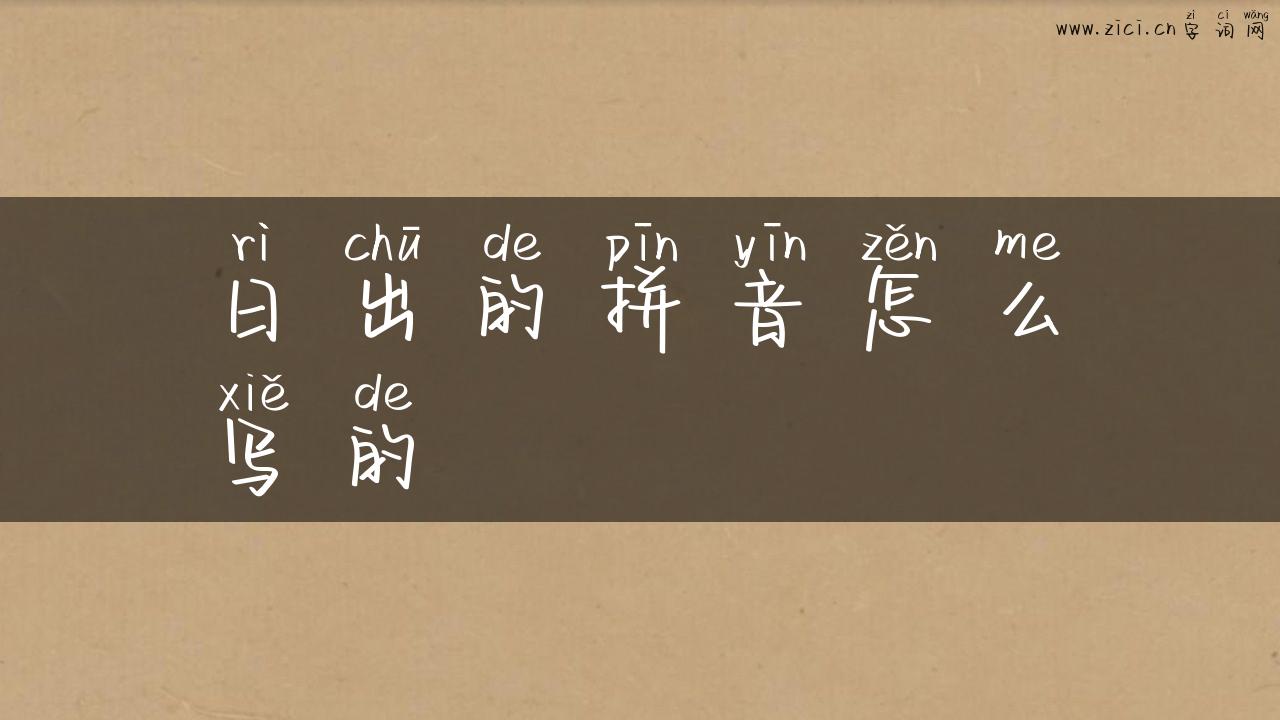 zì cí wǎng
www.zici.cn 字词网
rì chū de pīn yīn zěn me
日出的拼音怎么
xiě de
写的